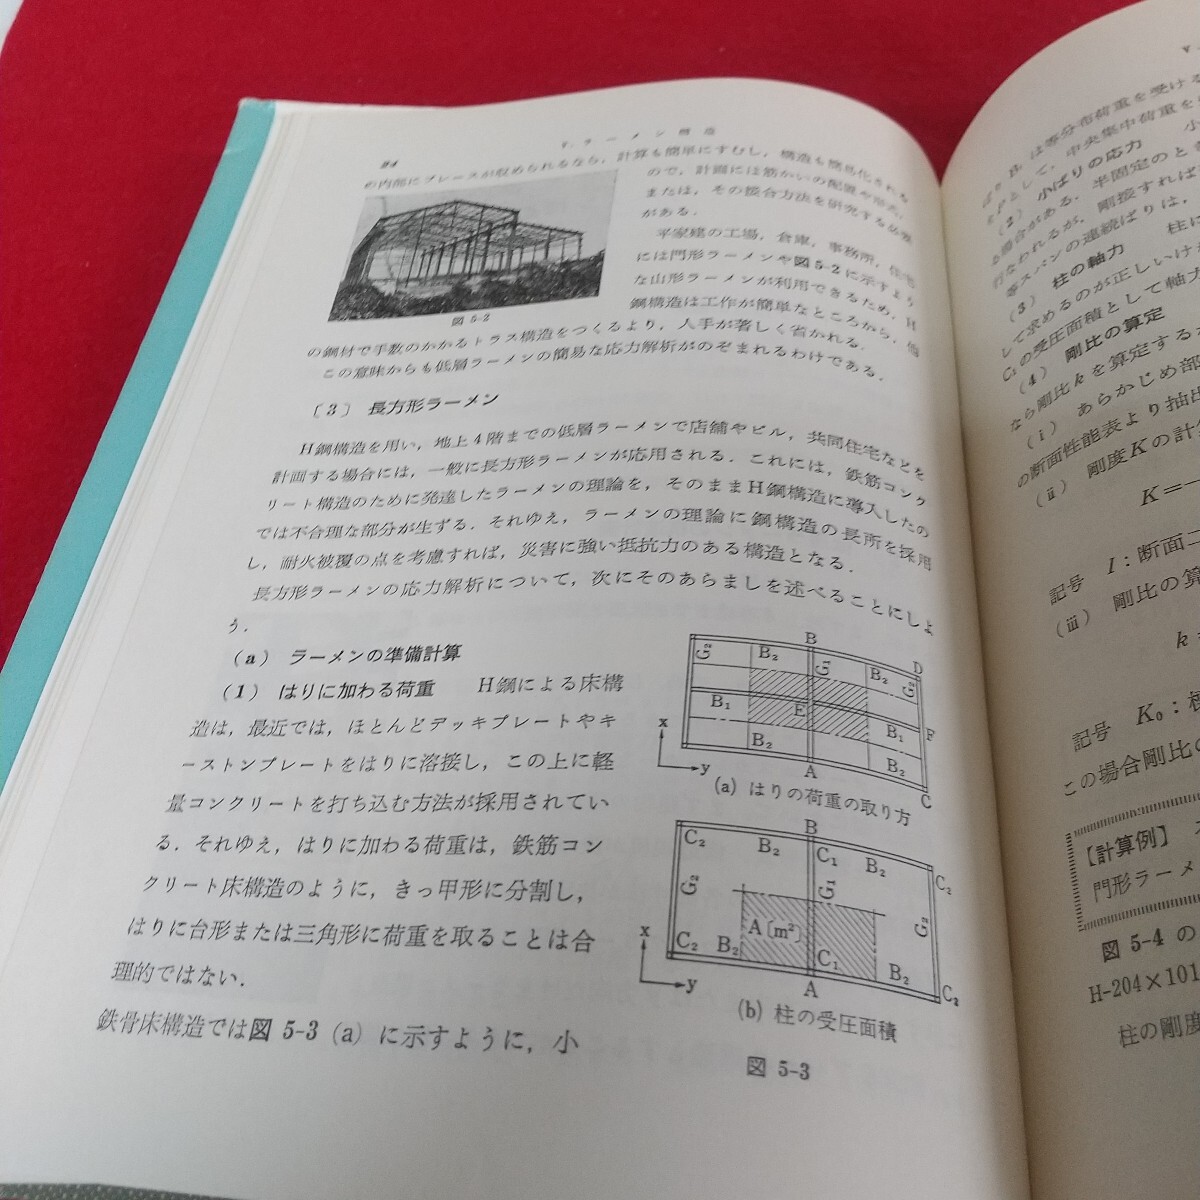 94
V. ラーメン構造
め内部にブレースが収められるなら，計算も簡単にすむし，構造も簡易化される
ので，計画には筋かいの配置や形式，
または，その接合方法を研究する必要
がある．
平家建の工場，倉庫，事務所，住宅
には門形ラーメンや図5-2に示すよう
な山形ラーメンが利用できるため，H
鋼構造は工作が簡単なところから，他
図 5-2
の鋼材で手数のかかるトラス構造をつくるより，人手が著しく省かれる．
この意味からも低層ラーメンの簡易な応力解析がのぞまれるわけである．
〔3〕 長方形ラーメン
H鋼構造を用い，地上4階までの低層ラーメンで店舗やビル，共同住宅などを
計画する場合には，一般に長方形ラーメンが応用される．これには，鉄筋コンク
リート構造のために発達したラーメンの理論を，そのままH鋼構造に導入したの
では不合理な部分が生ずる．それゆえ，ラーメンの理論に鋼構造の長所を採用
し，耐火被覆の点を考慮すれば，災害に強い抵抗力のある構造となる．
長方形ラーメンの応力解析について，次にそのあらましを述べることにしよ
う．
(a) ラーメンの準備計算
(1) はりに加わる荷重 H鋼による床構
造は，最近では，ほとんどデッキプレートやキ
ーストンプレートをはりに溶接し，この上に軽
量コンクリートを打ち込む方法が採用されてい
る．それゆえ，はりに加わる荷重は，鉄筋コン
クリート床構造のように，きっ甲形に分割し，
はりに台形または三角形に荷重を取ることは合
理的ではない．
鉄骨床構造では図 5-3 (a) に示すように，小
B
G₂ B₂ G₁ B₂ G₂ D
B₁ E B₁ F
B₂ B₂
x
y A C
(a) はりの荷重の取り方
B
C₂ B₂ C₁ B₂ C₂
G₂ G₁ G₂
A〔m²〕
x C₂ B₂ C₁ B₂ C₂
y A
(b) 柱の受圧面積
図 5-3
は等分布荷重を受ける
Pとして，中央集中荷重を
(2) 小ばりの応力 小
る場合がある．半固定のと
行なわれるが，剛接すれば
等スパンの連続ばりは，
(3) 柱の軸力 柱に
して求めるのが正しいけ
C₁の受圧面積として軸力
(4) 剛比の算定
なら剛比kを算定する
(i) あらかじめ部
の断面性能表より抽出
(ii) 剛度Kの計
K=
記号 I：断面二
(iii) 剛比の算
k
記号 K₀：
この場合剛比の
【計算例】
門形ラーメ
図 5-4 の
H-204×101
柱の剛度